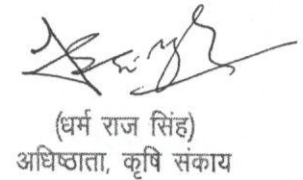 (धर्म राज सिंह)
अधिष्ठाता, कृषि संकाय